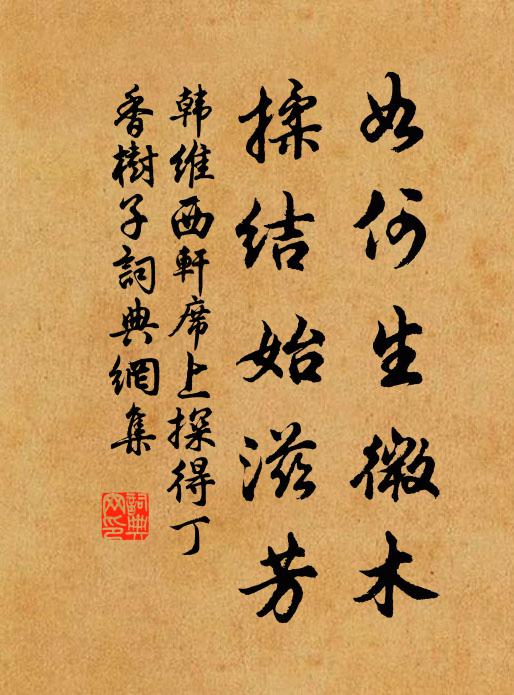 如何生微木
揉结始滋芳
韩维西軒席上探得丁
香樹子詞典網集
詞典
网印